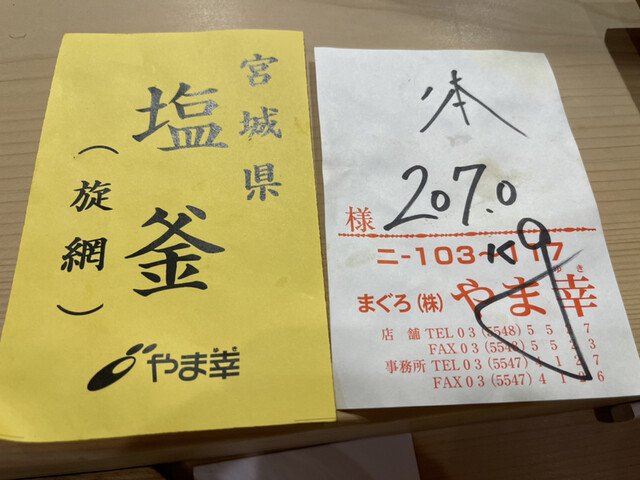 宮城県
塩釜
（旋網）
やま幸
本
207.0
Kg
様
ニ-103~117
まぐろ(株)やま幸
ゆき
店舗 TEL 03 (5548) 5527
FAX 03 (5548) 5523
事務所 TEL 03 (5547) 4127
FAX 03 (5547) 4126